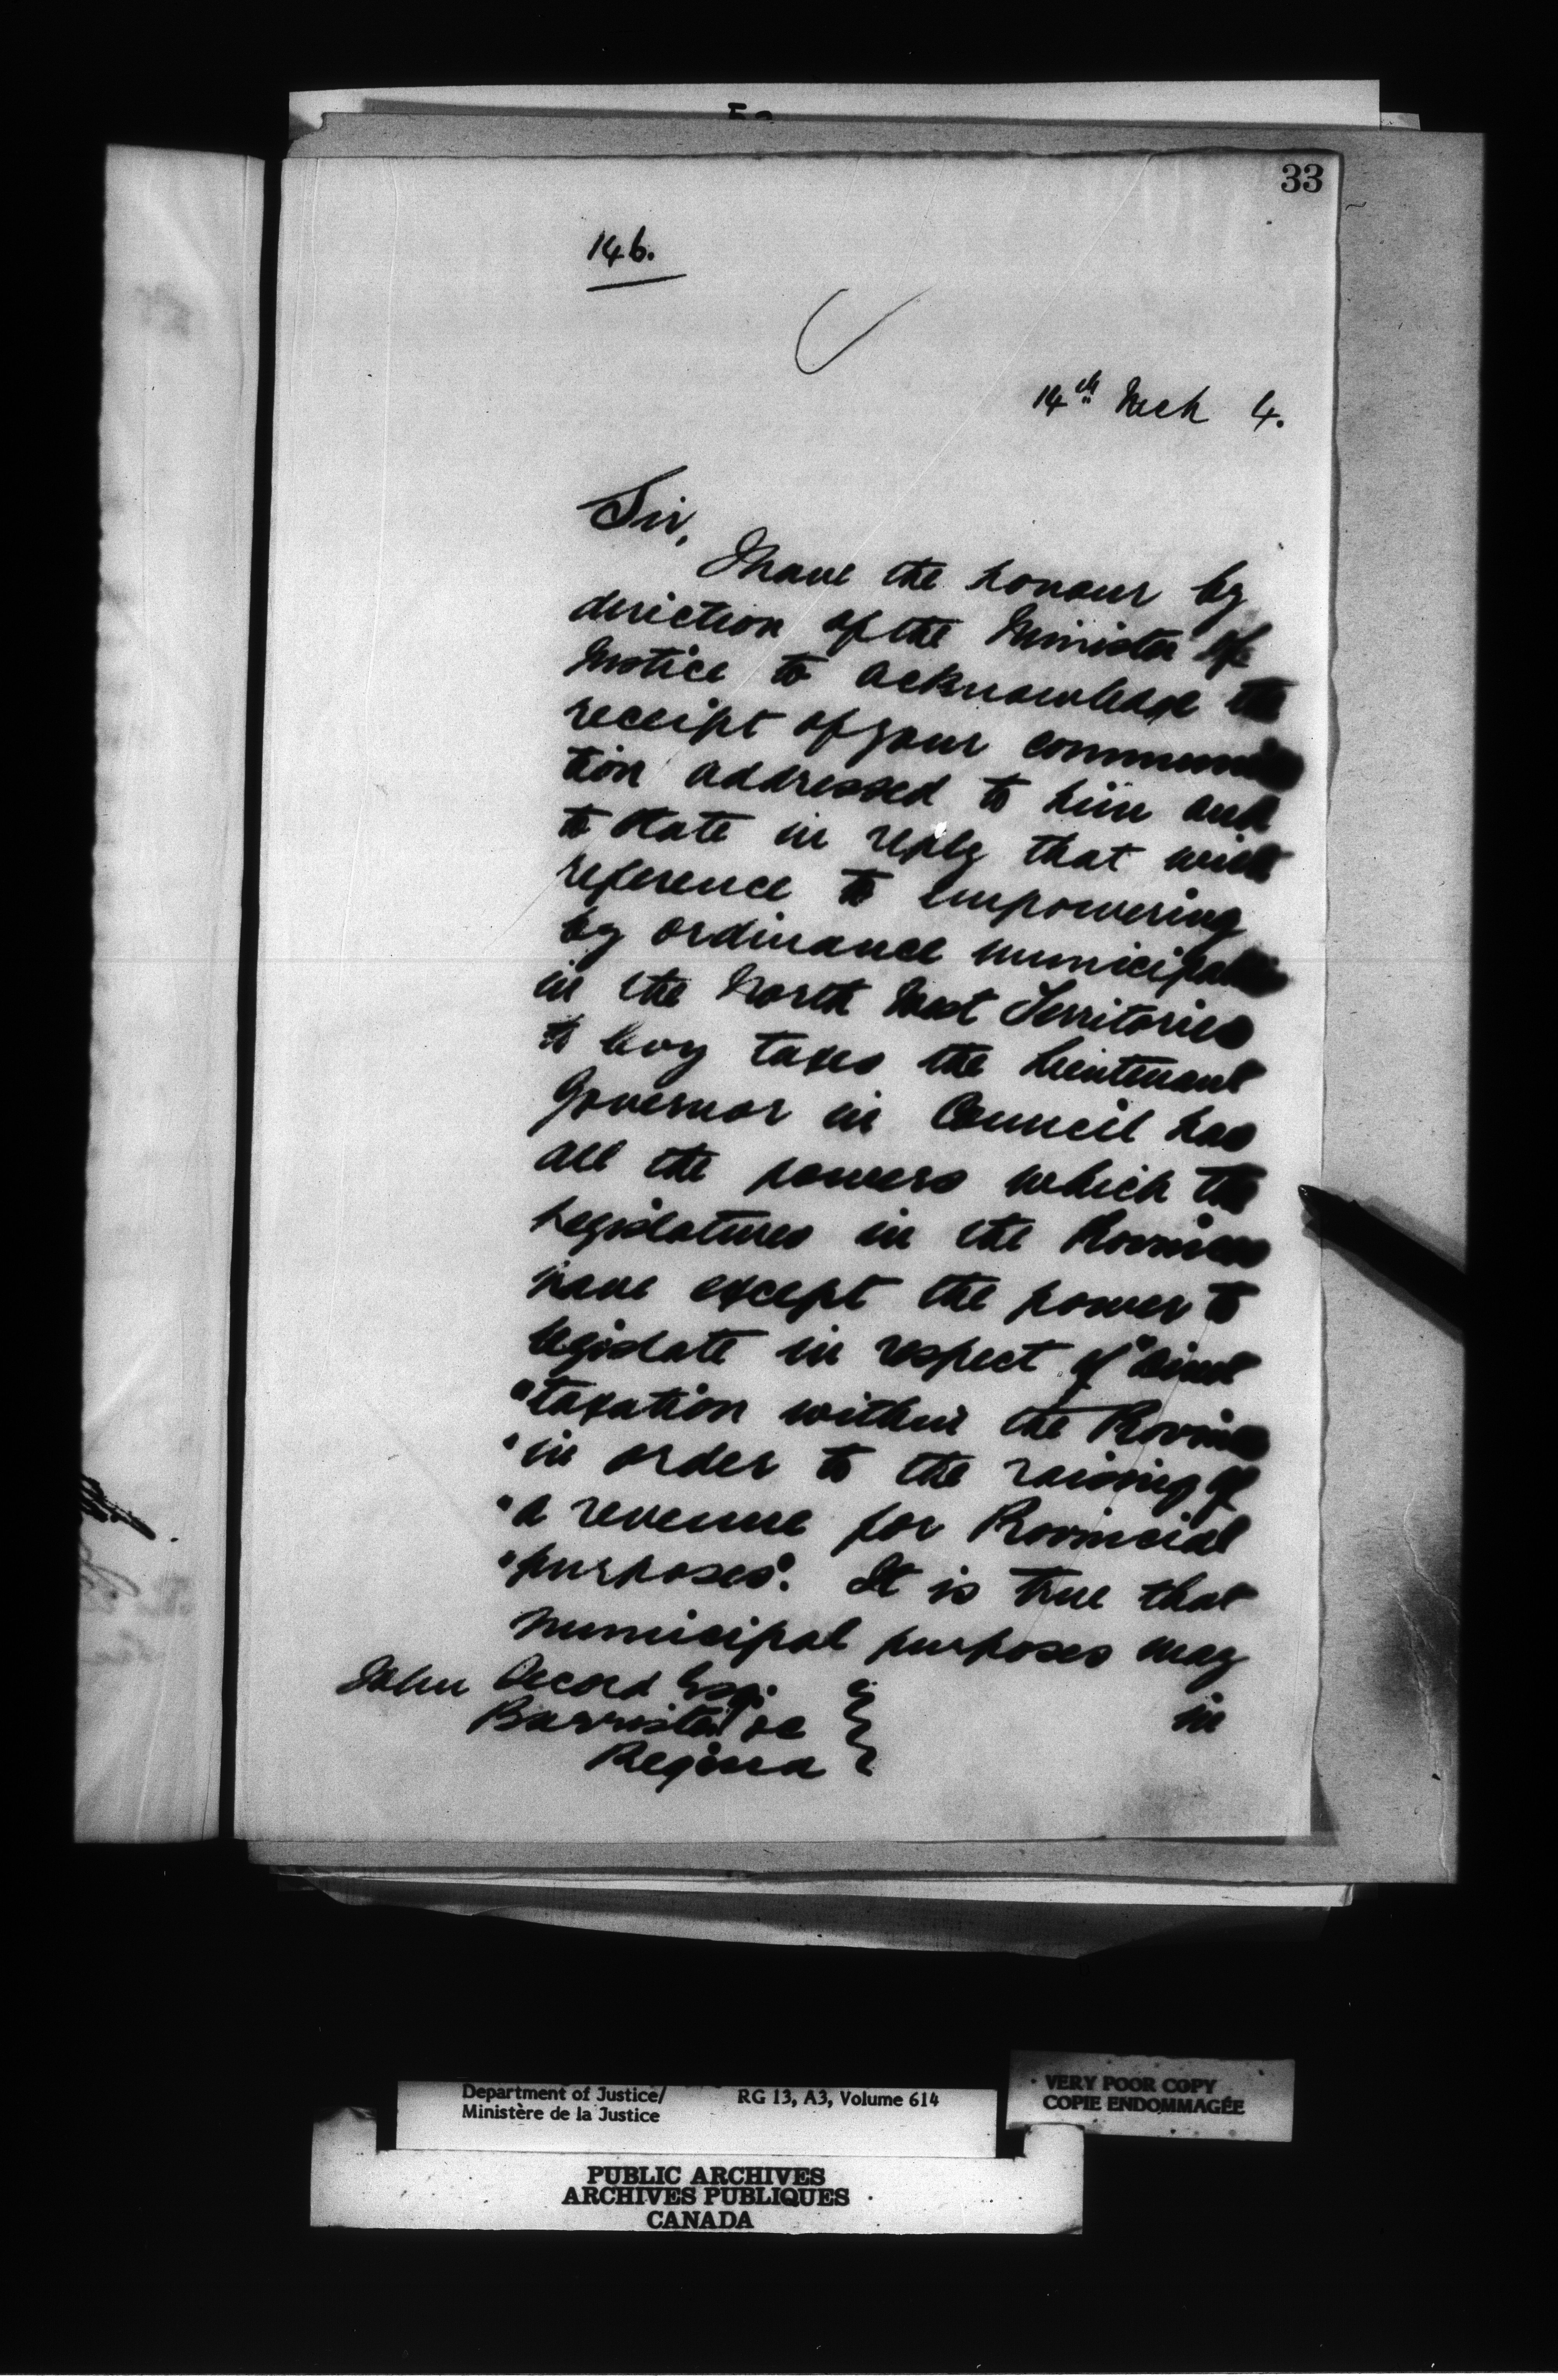 33
146.
14th Mch 4.
Sir,
I have the honour by
direction of the Minister of
Justice to acknowledge the
receipt of your communica
tion addressed to him and
to state in reply that with
reference to empowering
by ordinance municipalities
in the North West Territories
to levy taxes the Lieutenant
Governor in Council has
all the powers which the
Legislatures in the Provinces
have except the power to
legislate in respect of "direct
"taxation within the Province
"in order to the raising of
"a revenue for Provincial
"purposes". It is true that
municipal purposes may
in
John Secord Esq.
Barrister &c
Regina
Department of Justice/
Ministère de la Justice
RG 13, A3, Volume 614
VERY POOR COPY
COPIE ENDOMMAGÉE
PUBLIC ARCHIVES
ARCHIVES PUBLIQUES
CANADA